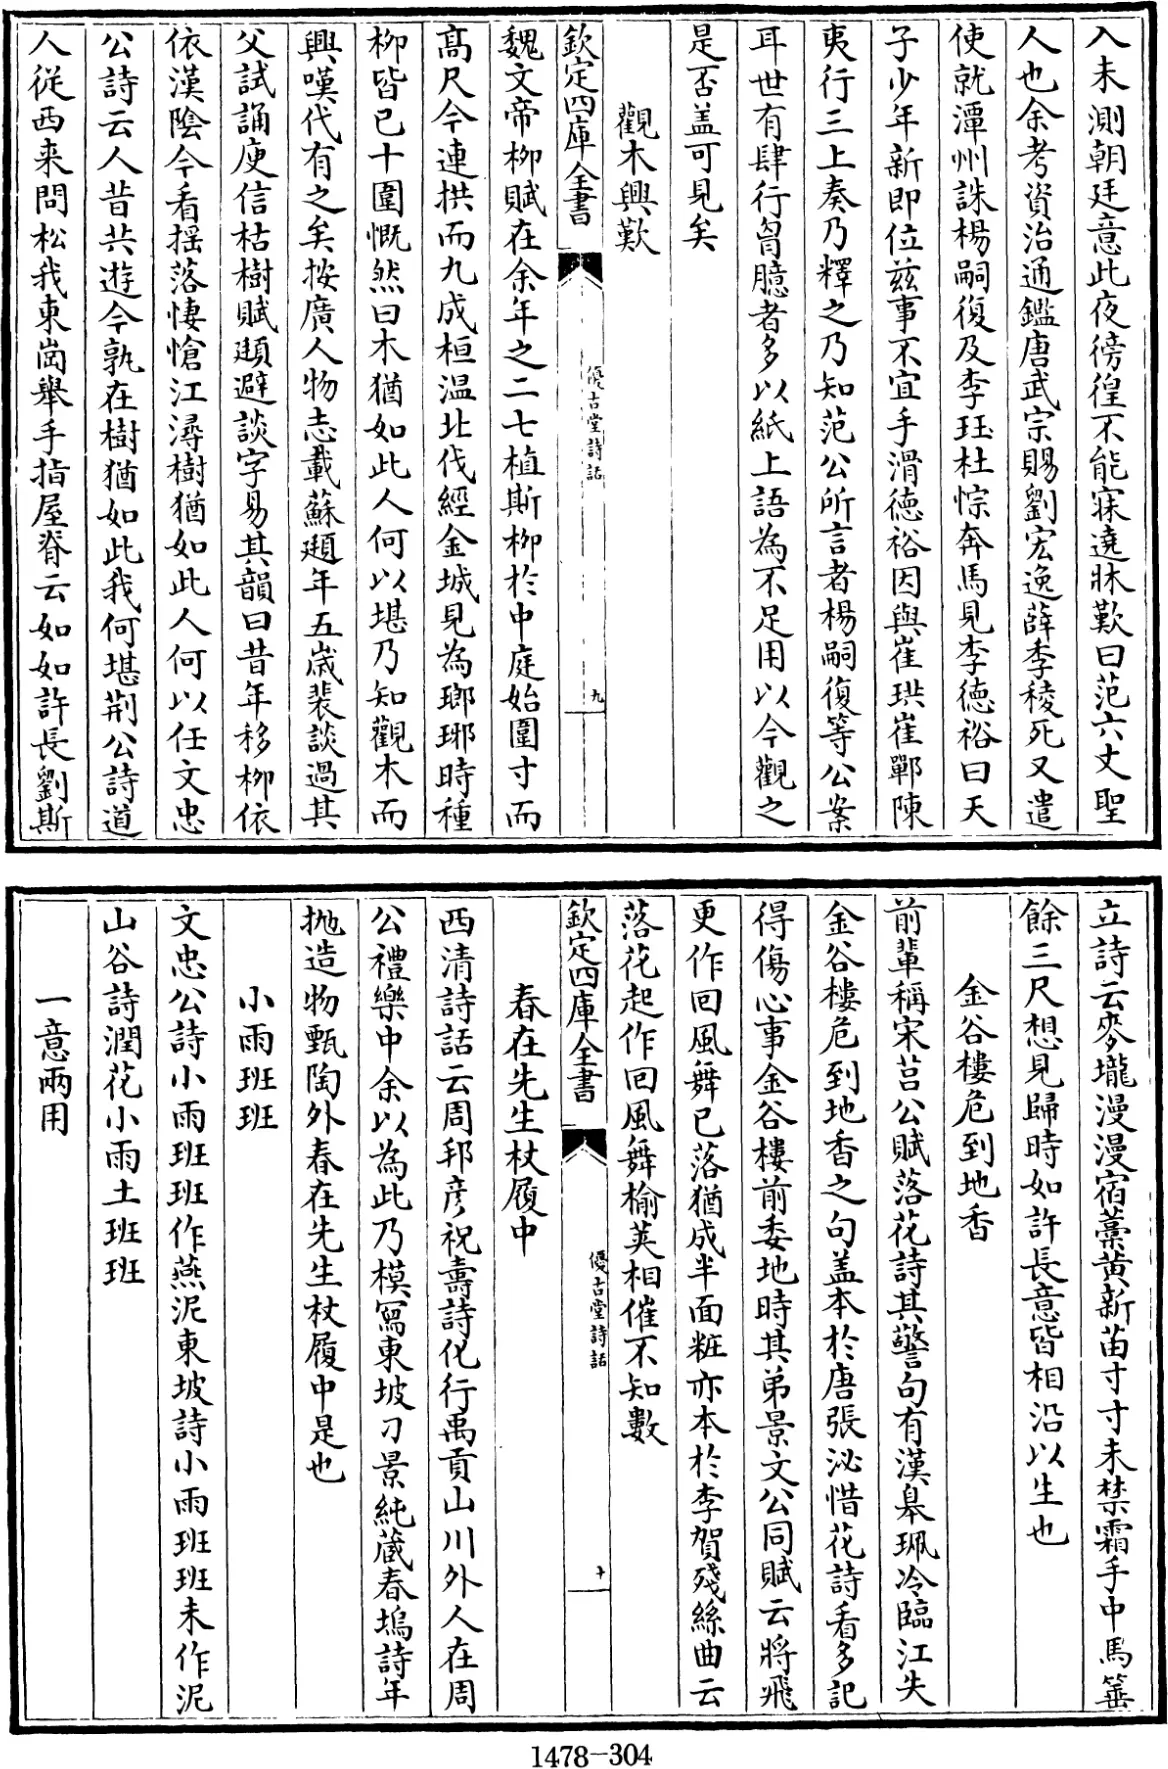 入未測朝廷意此夜徬徨不能寐遶牀歎曰范六丈聖
人也余考資治通鑑唐武宗賜劉宏逸薛季稜死又遣
使就潭州誅楊嗣復及李珏杜悰奔馬見李德裕曰天
子少年新即位兹事不宜手滑德裕因與崔珙崔鄲陳
夷行三上奏乃釋之乃知范公所言者楊嗣復等公案
耳世有肆行胷臆者多以紙上語為不足用以今觀之
是否盖可見矣
觀木興歎
欽定四庫全書
優古堂詩話
九
魏文帝柳賦在余年之二七植斯柳於中庭始圍寸而
髙尺今連拱而九成桓温北伐經金城見為瑯琊時種
柳皆已十圍慨然曰木猶如此人何以堪乃知觀木而
興嘆代有之矣按廣人物志載蘇頲年五歳裴談過其
父試誦庾信枯樹賦頲避談字易其韻曰昔年移柳依
依漢隂今看揺落悽愴江潯樹猶如此人何以任文忠
公詩云人昔共遊今孰在樹猶如此我何堪荆公詩道
人從西来問松我東崗舉手指屋脊云如如許長劉斯
立詩云麥壠漫漫宿藁黄新苗寸寸未禁霜手中馬箠
餘三尺想見歸時如許長意皆相沿以生也
金谷樓危到地香
前軰稱宋莒公賦落花詩其警句有漢臯珮冷臨江失
金谷樓危到地香之句盖本於唐張泌惜花詩看多記
得傷心事金谷樓前委地時其弟景文公同賦云將飛
更作回風舞已落猶成半面粧亦本於李賀殘絲曲云
落花起作回風舞榆莢相催不知數
欽定四庫全書
優古堂詩話
十
春在先生杖履中
西清詩話云周邦彦祝夀詩化行禹貢山川外人在周
公禮樂中余以為此乃模寫東坡刁景純藏春塢詩年
抛造物甄陶外春在先生杖履中是也
小雨班班
文忠公詩小雨班班作燕泥東坡詩小雨班班未作泥
山谷詩潤花小雨土班班
一意兩用
1478-304